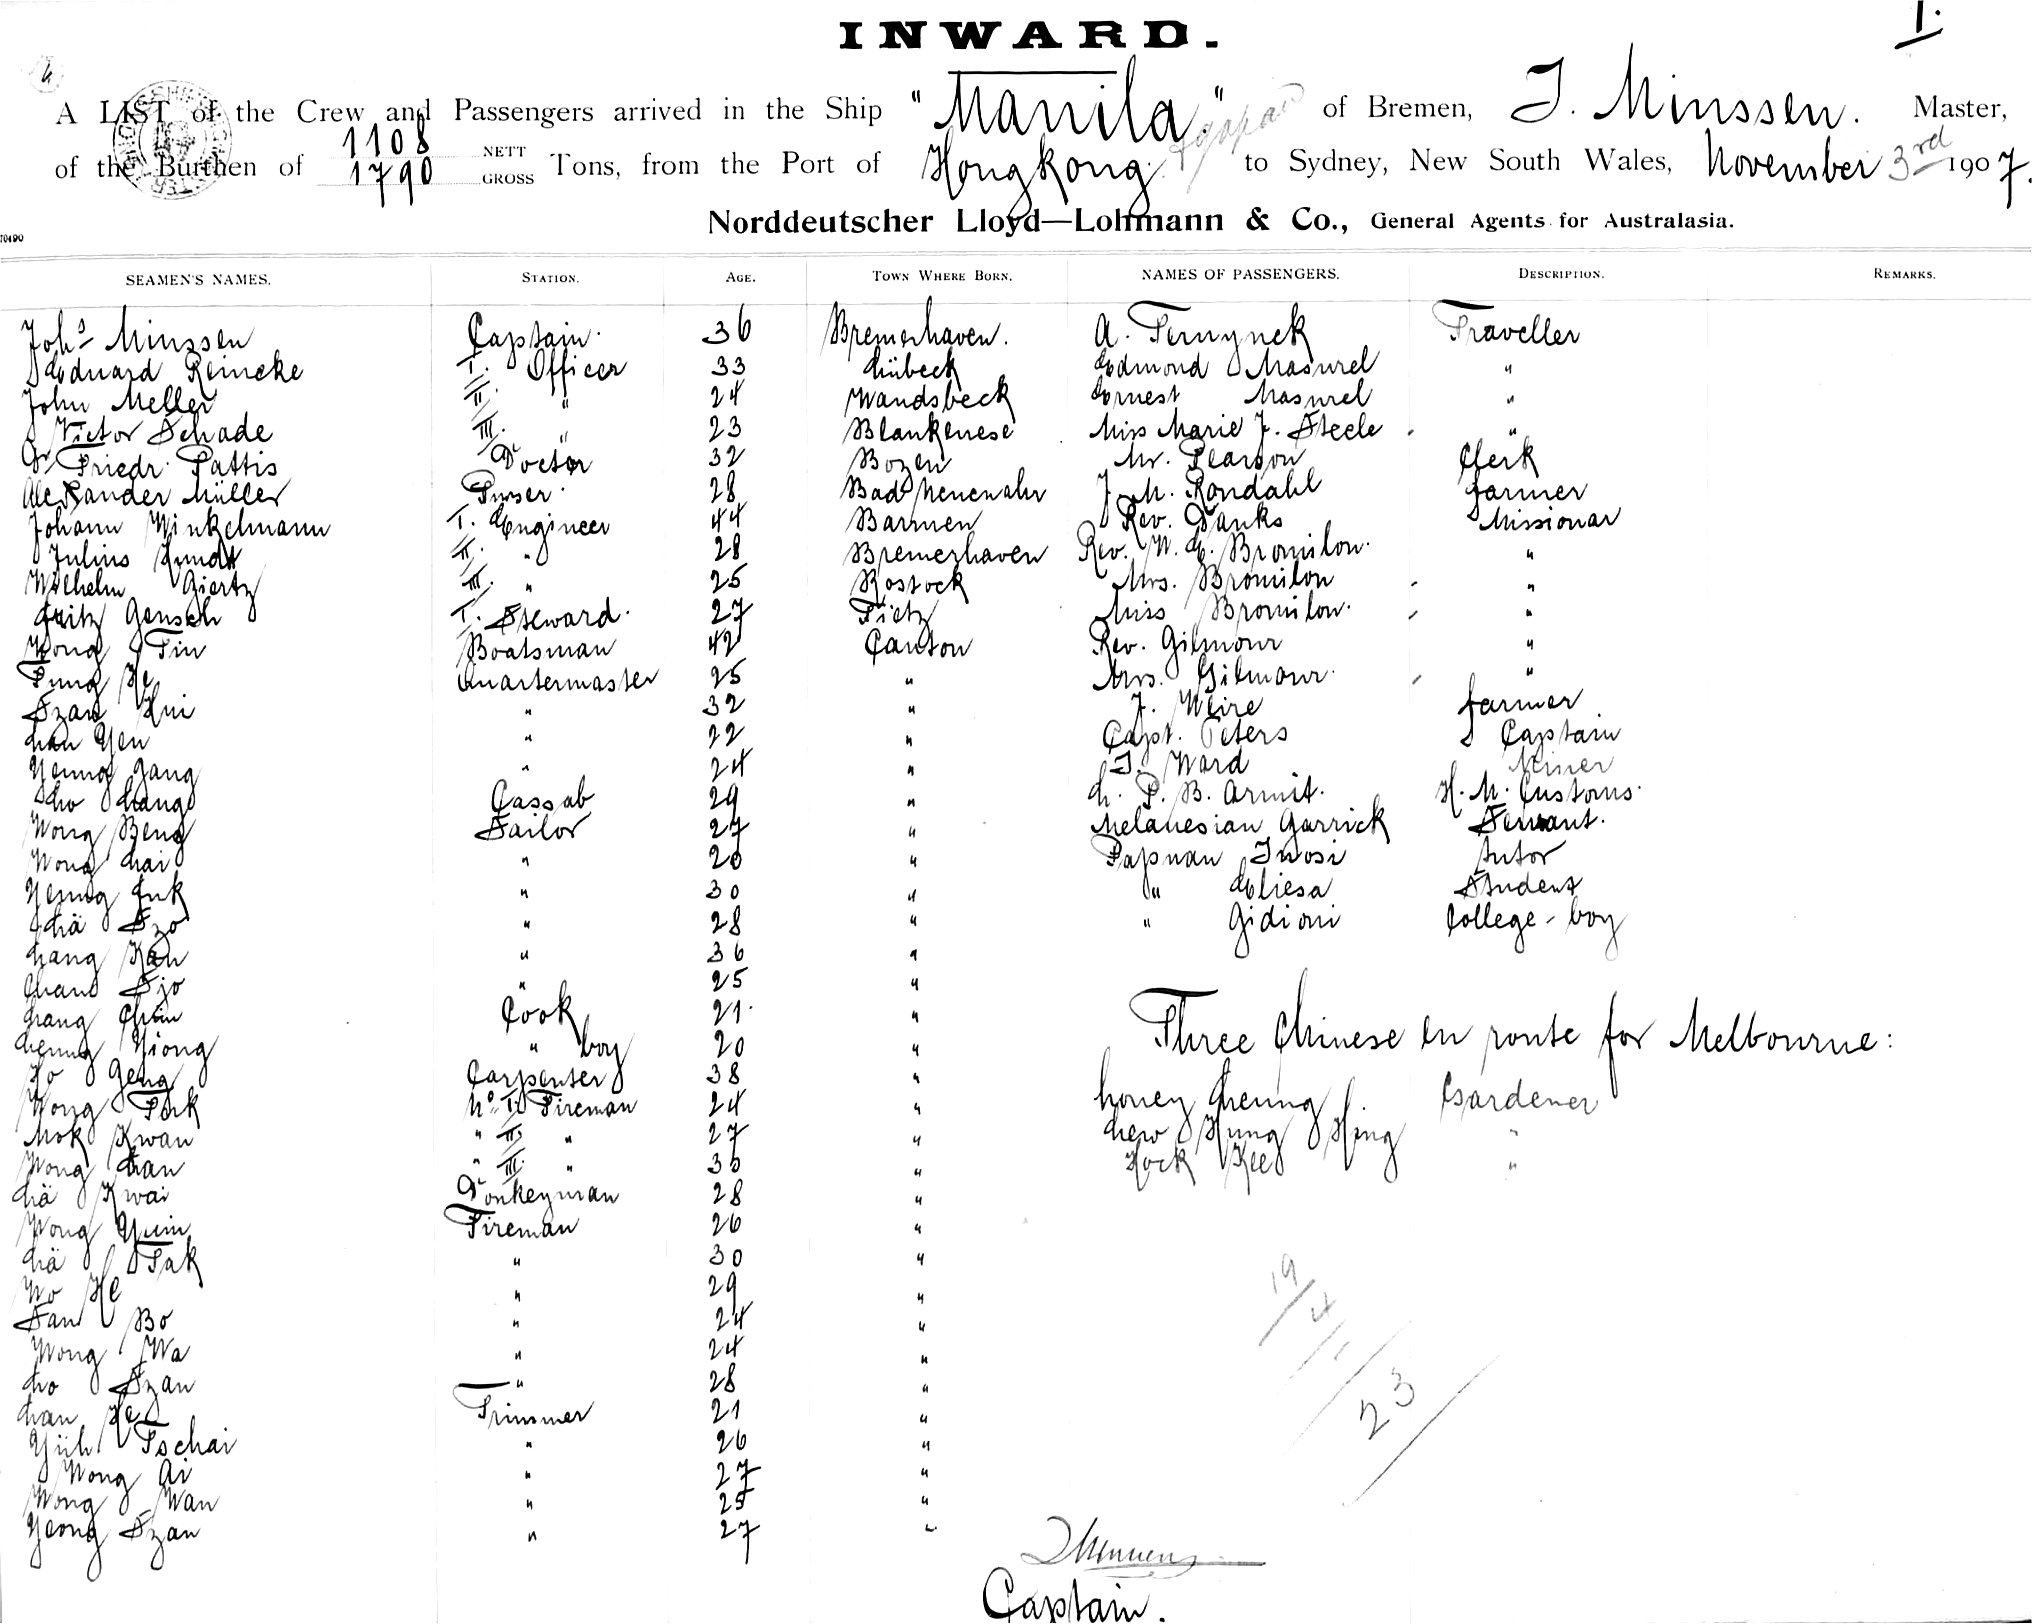 I.
INWARD.
A LIST of the Crew and Passengers arrived in the Ship "Manila" of Bremen, J. Minssen. Master,
of the Burthen of 1108 NETT 1790 GROSS Tons, from the Port of Hongkong to Sydney, New South Wales, November 3rd 1907.
Norddeutscher Lloyd—Lohmann & Co., General Agents for Australasia.
10490
SEAMEN'S NAMES. STATION. AGE. TOWN WHERE BORN. NAMES OF PASSENGERS. DESCRIPTION. REMARKS.
Johs Minssen Captain. 36 Bremerhaven. A. Ternynck Traveller
Eduard Reincke I. Officer 33 Lübeck Edmond Masurel "
John Meller II. " 24 Wandsbeck Ernest Masurel "
Victor Schade III. " 23 Blankenese Miss Marie J. Steele "
Dr Friedr. Pattis Doctor 32 Bozen Mr. Pearson Clerk
Alexander Müller Purser. 28 Bad Neuenahr J. M. Rondahl farmer
Johann Winkelmann I. Engineer 44 Barmen Rev. Danks Missionar
Julius Kundt II. " 28 Bremerhaven Rev. W. E. Bromilow. "
Wilhelm Giertz III. " 25 Rostock Mrs. Bromilow "
Fritz Gensch I. Steward. 27 Tietz Miss Bromilow. "
Wong Tin Boatsman 42 Canton Rev. Gilmour "
Tung He Quartermaster 25 " Mrs. Gilmour. "
Szan Hui " 32 " J. Weire farmer
Lau Yen " 22 " Capt. Peters Captain
Yeung Gang " 24 " J. Ward Miner
Lho Lang Cassab 29 " L. P. B. Armit. H. M. Customs.
Wong Beng Sailor 27 " Melanesian Garrick Servant.
Wong Lai " 20 " Papuan Inosi Tutor
Yeung Luk " 30 " " Eliesa Student
Lhä Szo " 28 " " Gidioni College-boy
Lang Kan " 36 "
Chang Sjo " 25 "
Lang Chin Cook 21. "
Three Chinese en route for Melbourne:
Leung Yiong " boy 20 "
Ho Geng Carpenter 38 "
Wong Tork No I. Fireman 24 " Loney Cheung Gardener
Mok Kwan " II. " 27 " Lew Hung Hing "
Wong Lan " III. " 35 " Hock Kee "
Lä Kwai Donkeyman 28 "
Wong Yuin Fireman 26 "
Lä Tak " 30 "
Wo He " 29 "
San Bo " 24 "
Wong Wa " 24 "
Lo Szan " 28 "
Lan He Trimmer 21 "
Yüh Tschai " 26 "
Wong Ai " 27 "
Wong Wan " 25 "
Yeong Szan " 27 "
19
4
23
JMinssen
Captain.